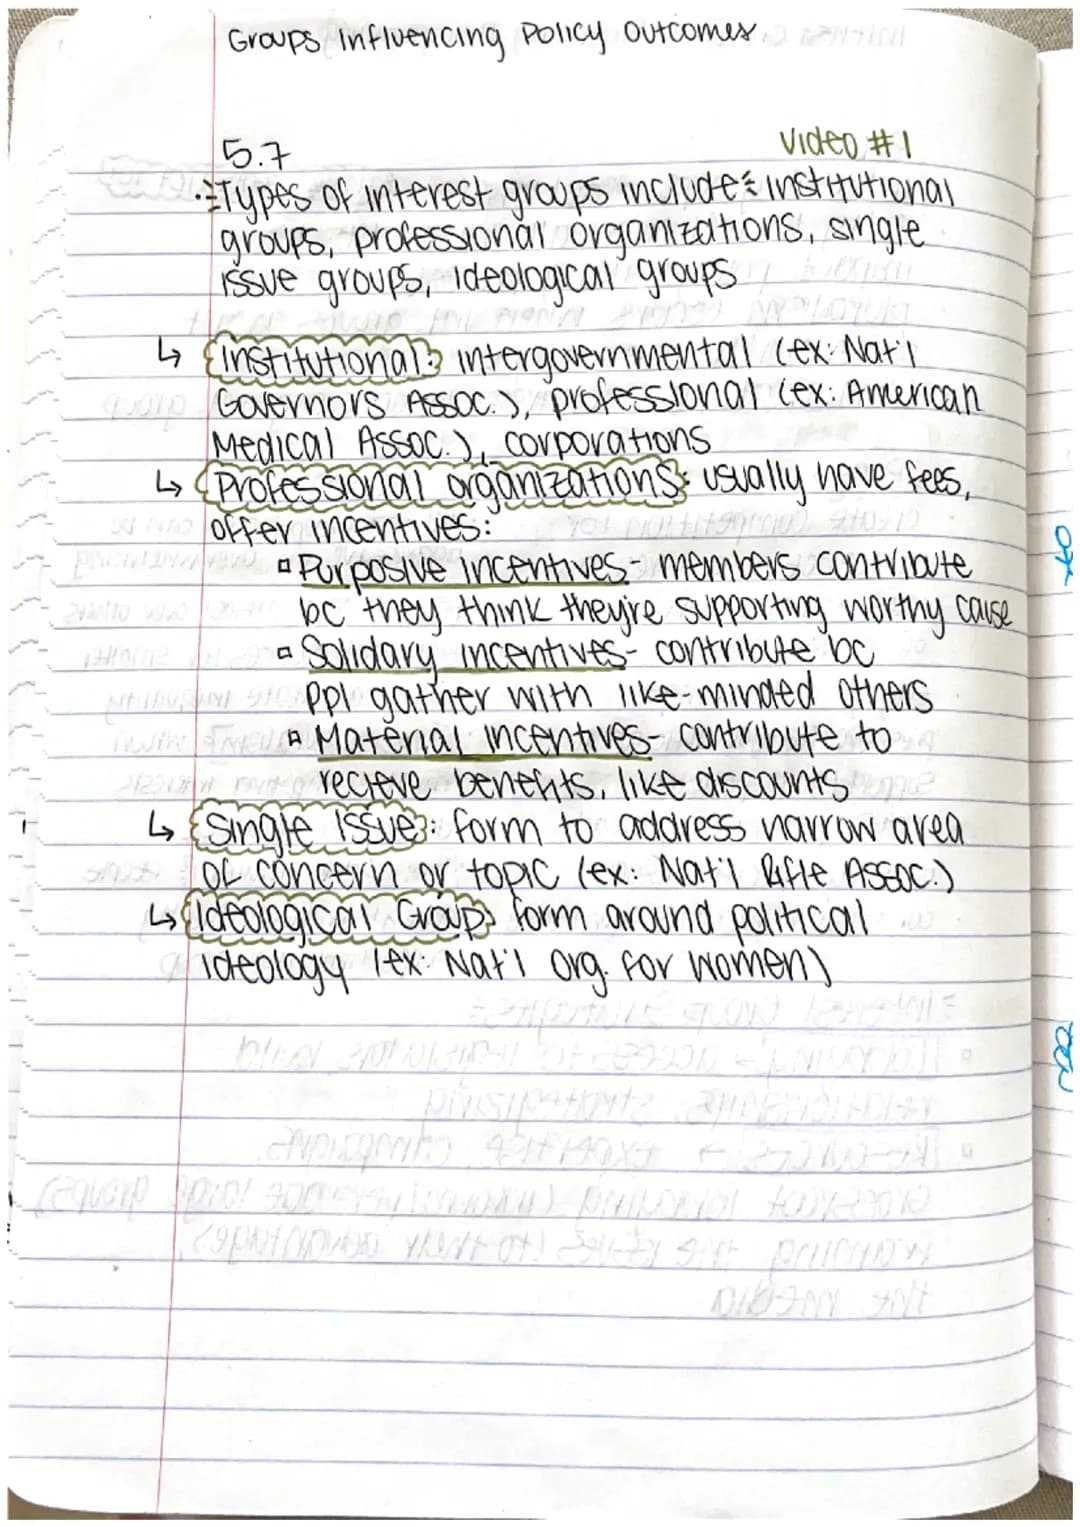 Groups Influencing Policy Outcomes
5.7
Video #1
Types of interest groups include: institutional
groups, professional organizations, single
issue groups, ideological groups
↳ Institutional: intergovernmental (ex: Nat'l
Governors Assoc.), professional (ex: American
Medical Assoc.), corporations
↳ Professional organizations: usually have fees,
offer incentives:
▫ Purposive incentives- members contribute
bc they think they're supporting worthy cause
▫ Solidary incentives- contribute bc
ppl gather with like-minded others
▫ Material incentives- contribute to
recieve benefits, like discounts
↳ Single Issue: form to address narrow area
of concern or topic (ex: Nat'l Rifle Assoc.)
↳ Ideological Group: form around political
ideology (ex: Nat'l Org. for Women)